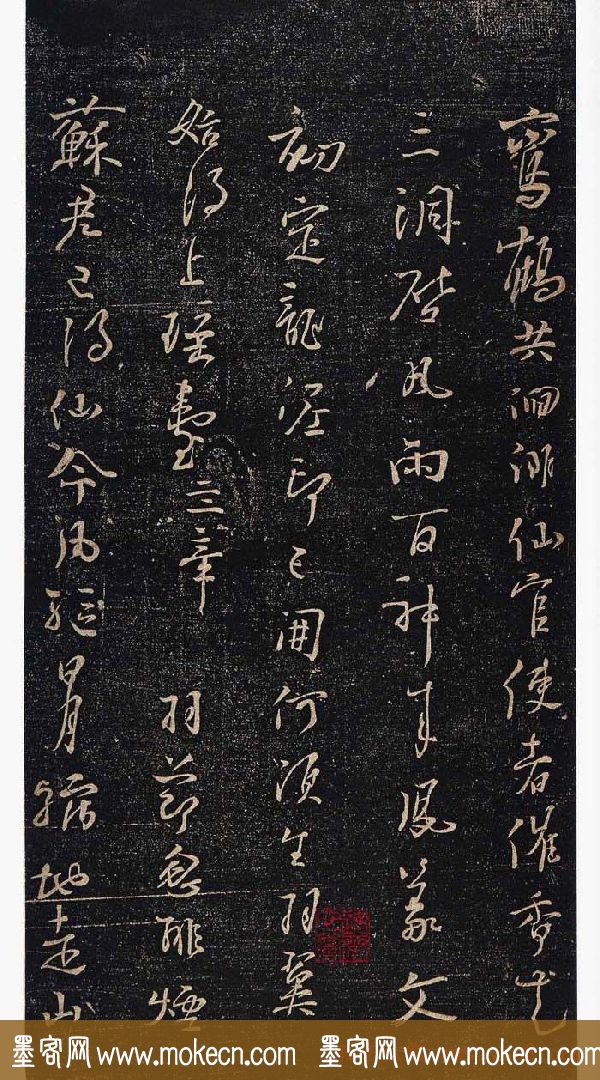 鸞鶴共徊徘仙官使者催香花
三洞啓風雨百神來鳳篆文
初定龍泥印已開何須生羽翼
始得上瑤臺三章 羽節忽排煙
蘇君已得仙命風驅日月縮地走山
墨客网 www.mokecn.com 墨客网 www.mokecn.com